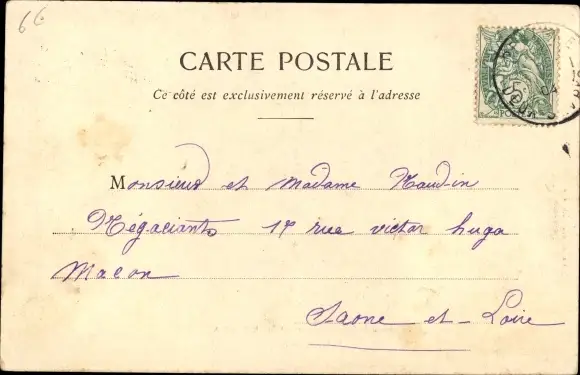 66
CARTE POSTALE
Ce côté est exclusivement réservé à l'adresse
Monsieur et Madame Naudin
Négociants 17 rue victor hugo
Macon
Saone et Loire